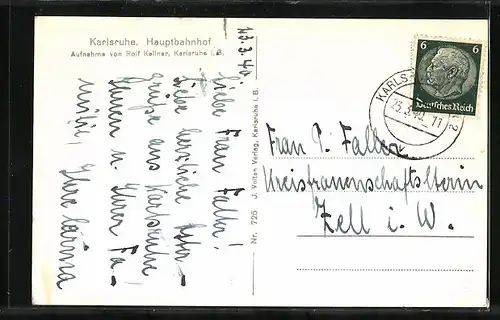 Karlsruhe. Hauptbahnhof
Aufnahme von Rolf Kellner, Karlsruhe i. B.
Liebe Frau Faller!
herzliche Oster-
grüße aus Karlsruhe
Ihnen u. Ihrer Fa-
milie, Ihre
Nr. 725 J. Velten Verlag, Karlsruhe i. B.
6 6
Deutsches Reich
KARLS
11
Frau P. Faller
Kreisfrauenschaftsleiterin
Zell i. W.